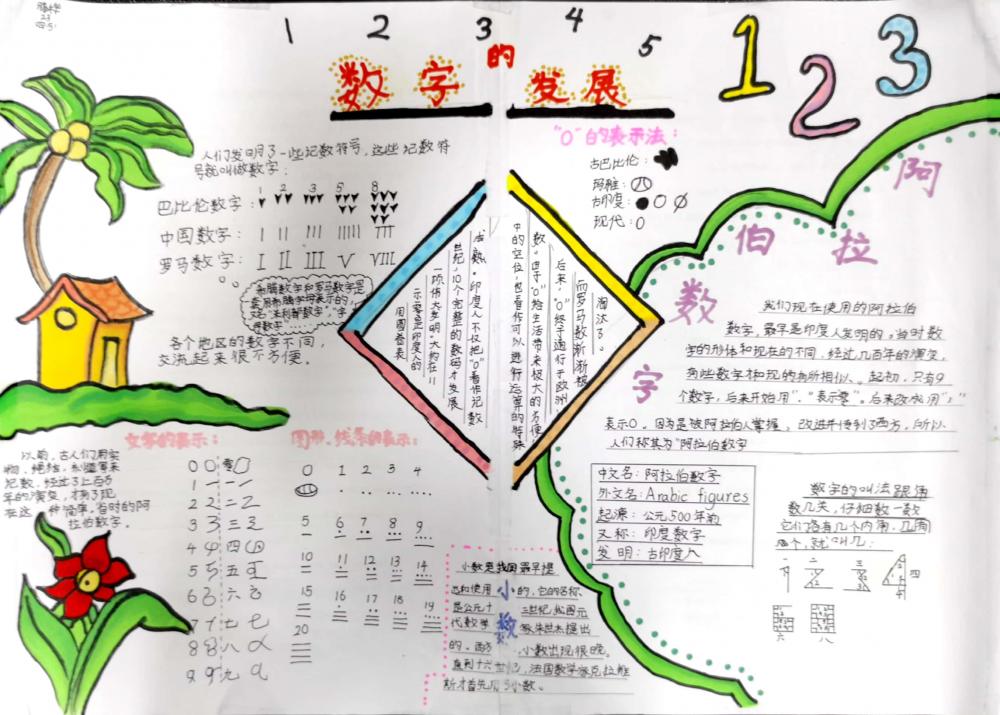 四(5)
1 2 3 4 5
数字的发展
1 2 3
人们发明了一些记数符号,这些记数符
号就叫做数字:
1 2 3 5 8
巴比伦数字:
中国数字:
罗马数字:I II III V VIII
各个地区的数字不同,
交流起来很不方便。
"0"的表示法:
古巴比伦:
玛雅:
古印度:
现代:0
淘汰了。
而罗马数字渐渐被
后来,"0"终于通行于欧洲,
数。由于"0"给生活带来极大的方便
中的空位,也看作可以进行运算的特殊
成熟。印度人不仅把"0"看作记数
世纪,10个完整的数码才发展
一项伟大发明。大约在11
示零是印度人的
用圆圈表
阿拉伯数字
我们现在使用的阿拉伯
数字,最早是印度人发明的。当时数
字的形体和现在的不同,经过几百年的演变,
有些数字才和现的有所相似、。起初,只有9
个数字,后来开始用"."表示零"。后来改成用"
表示0。因为是被阿拉伯人掌握、改进并传到了西方,所以
人们称其为"阿拉伯数字
中文名:阿拉伯数字
外文名:Arabic figures
起源:公元500年前
又称:印度数字
发明:古印度人
数字的叫法跟角
数几关,仔细数一数
它们各有几个内角,几角
文字的表示:
以前,古人们用实
物、绳结、
记数,经过了上百万
年的演变,才有了现
在这一种简单、省时的阿
拉伯数字。
0 零
1 一
2 二
3 三
4 四
5 五
6 六
7 七
8 八
9 九
图形、线条的表示:
0 1 2 3 4
5 6 7 8 9
10 11 12 13 14
15 16 17 18 19
20
小数
小数是我国最早提
出和使用的,它的名称
是公元十三世纪,我国元
代数学家朱世杰提出
的。西方,小数出现很晚。
直到十六世纪,法国数学家克拉维
斯才首先用了小数。